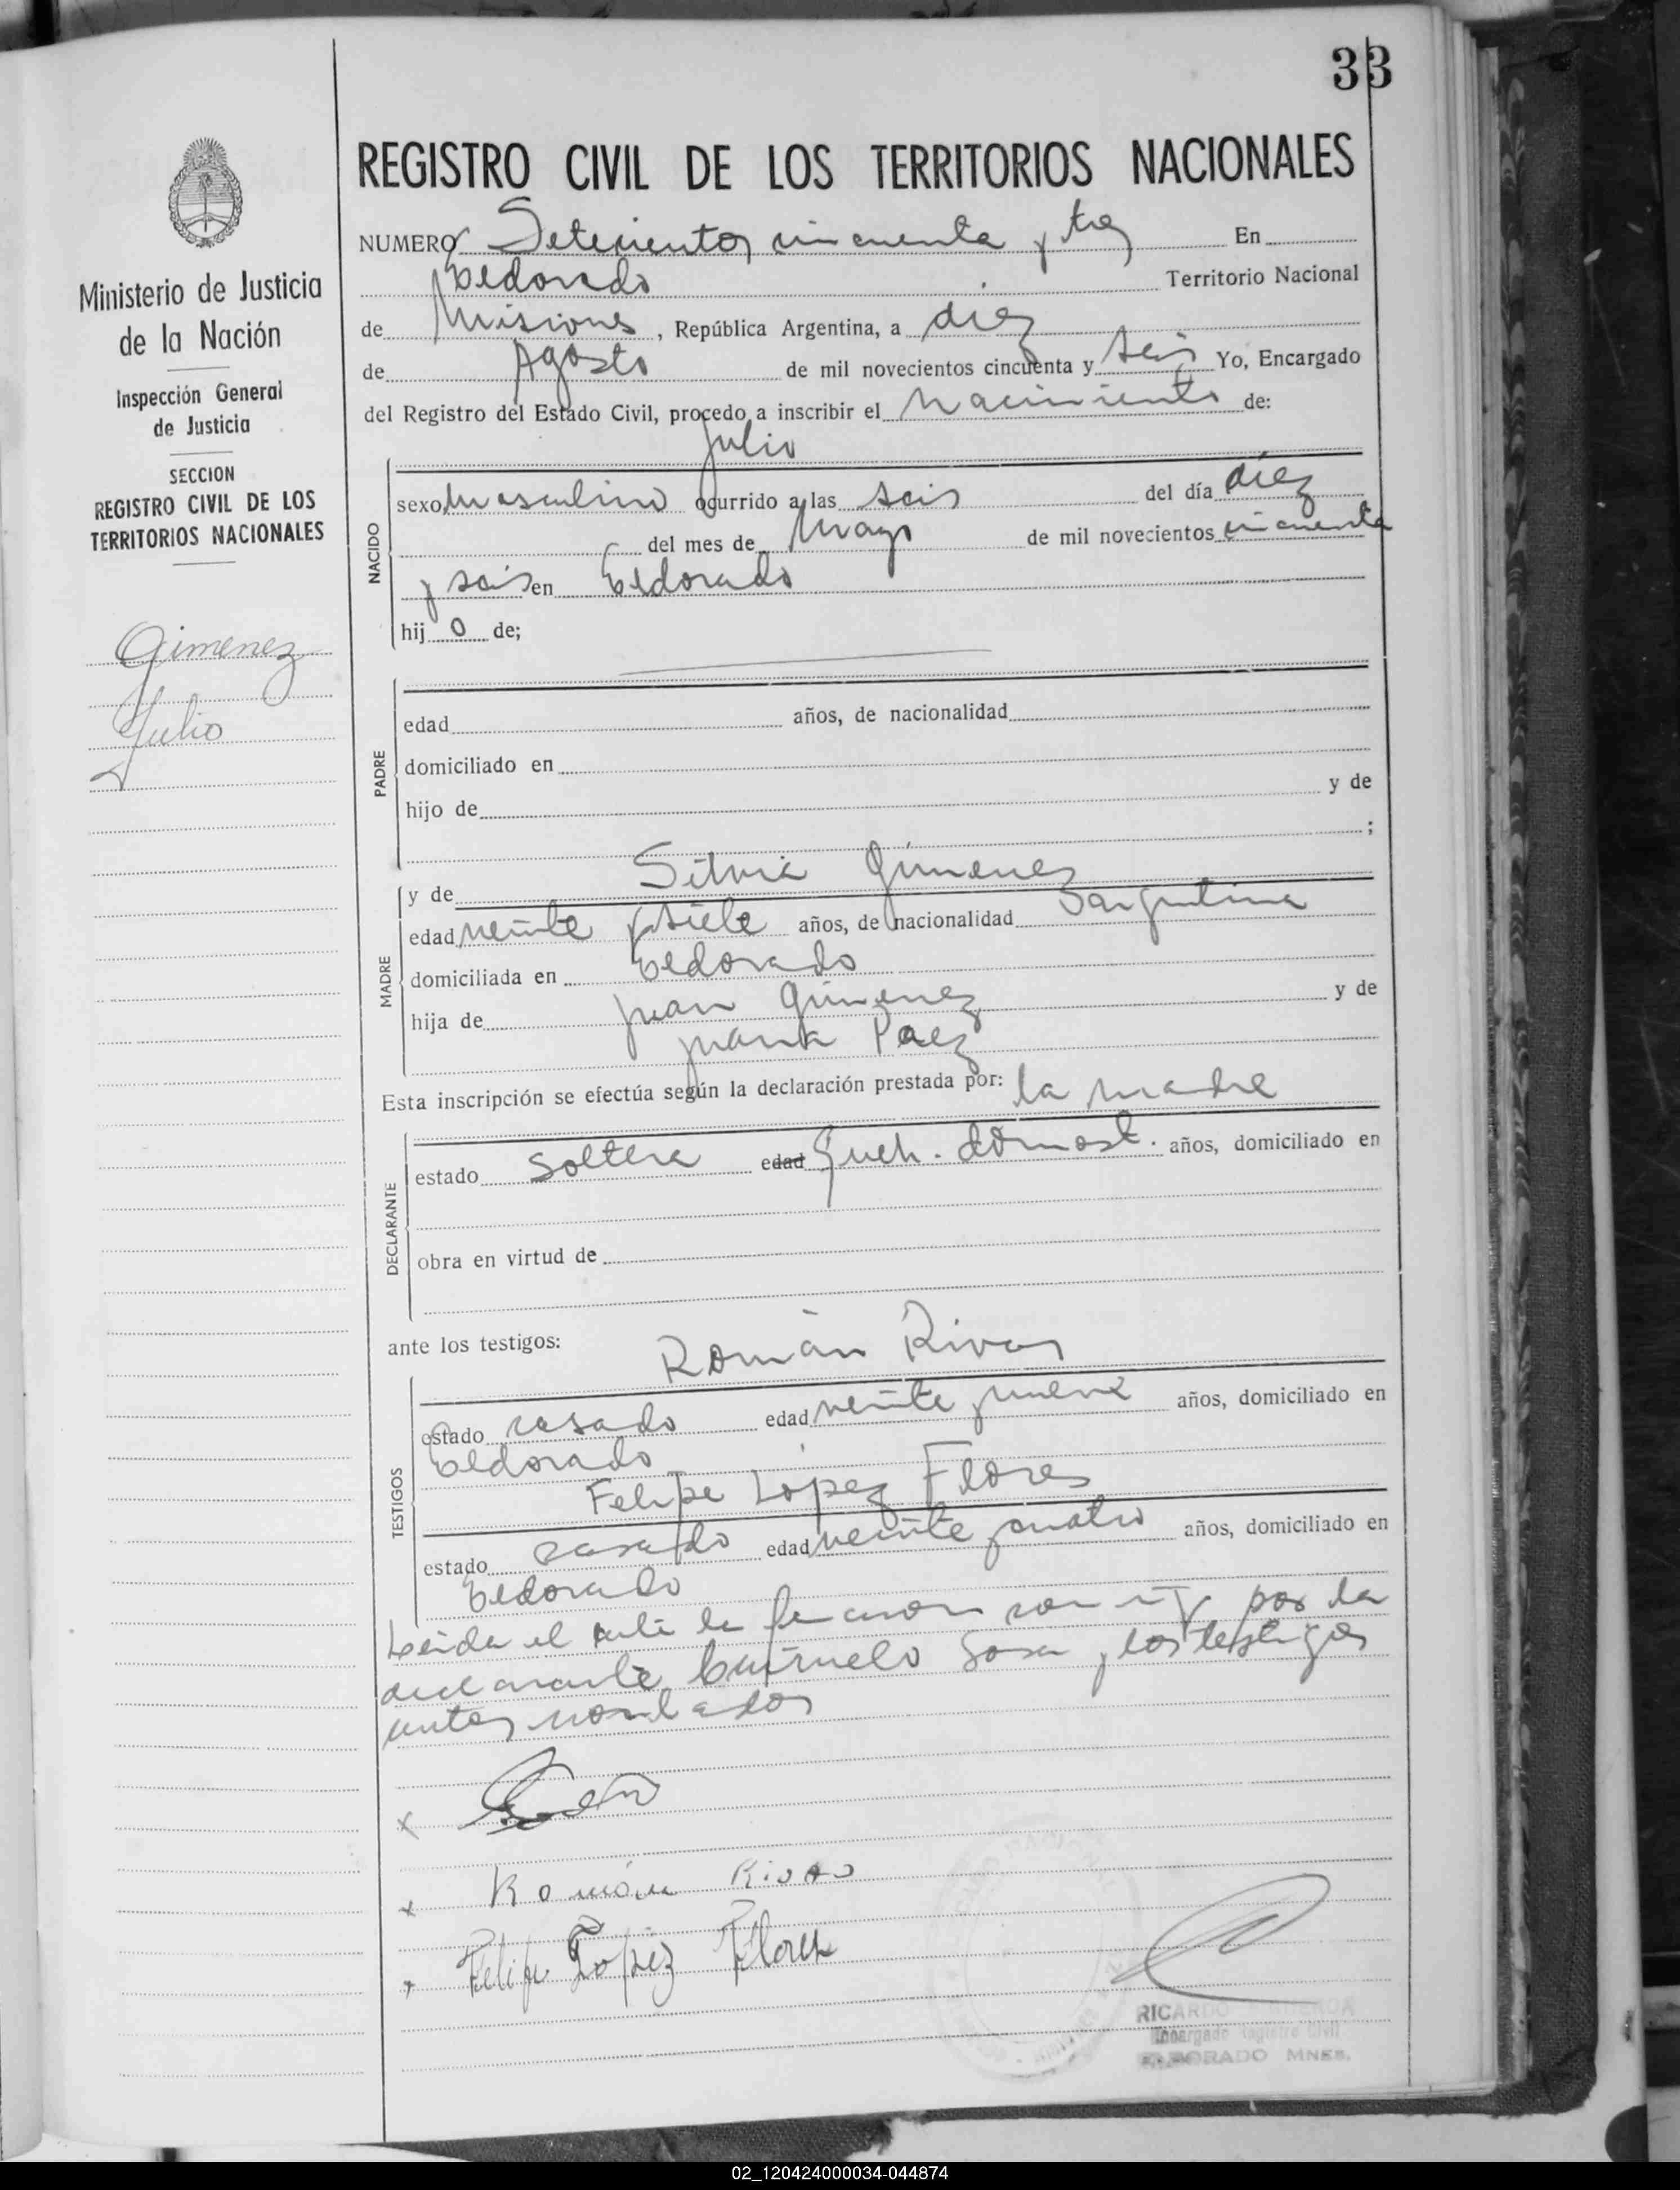 33
REGISTRO CIVIL DE LOS TERRITORIOS NACIONALES
Ministerio de Justicia
de la Nación
Inspección General
de Justicia
SECCION
REGISTRO CIVIL DE LOS
TERRITORIOS NACIONALES
Gimenez
Julio
NUMERO Setecientos cincuenta y tres En
Eldorado Territorio Nacional
de Misiones, República Argentina, a diez
de Agosto de mil novecientos cincuenta y seis Yo, Encargado
del Registro del Estado Civil, procedo a inscribir el Nacimiento de:
Julio
NACIDO
sexo Masculino ocurrido a las seis del día diez
del mes de Mayo de mil novecientos cincuenta
y seis en Eldorado
hijo de;
PADRE
edad años, de nacionalidad
domiciliado en
hijo de y de
;
MADRE
y de Silvia Gimenez
edad veinte y siete años, de nacionalidad argentina
domiciliada en Eldorado
hija de Juan Gimenez y de
Juana Paez
Esta inscripción se efectúa según la declaración prestada por: la madre
DECLARANTE
estado soltera edad Queh. domest. años, domiciliado en
obra en virtud de
ante los testigos: Román Rivas
TESTIGOS
estado casado edad veinte y nueve años, domiciliado en
Eldorado
Felipe López Flores
estado casado edad veinte y cuatro años, domiciliado en
Eldorado
Leida el acta la firmaron por la
declarante Sosa y los testigos
antes nombrados
x
x Román Rivas
x Felipe Lopez Flores
RICARDO
Encargado Registro Civil
ELDORADO MNES.
02_120424000034-044874